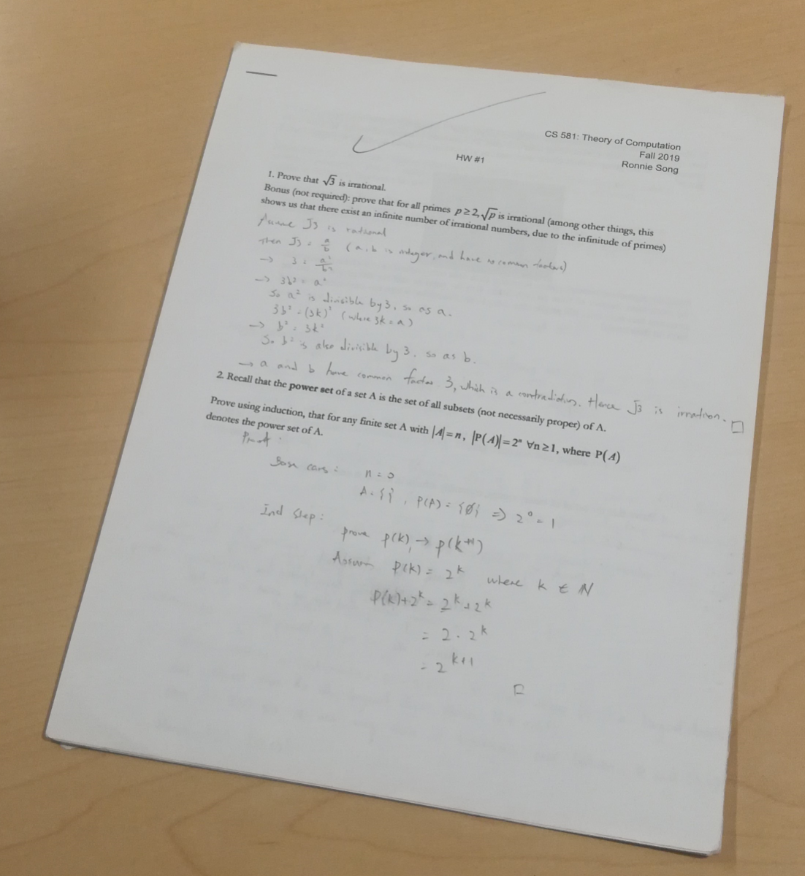 CS 581: Theory of Computation
Fall 2019
HW #1
Ronnie Song
1. Prove that √3 is irrational.
Bonus (not required): prove that for all primes p ≥ 2, √p is irrational (among other things, this
shows us that there exist an infinite number of irrational numbers, due to the infinitude of primes)
√3 is rational
Then √3 = a/b (a, b is integer, and have no common factors)
→ 3 = a²/b²
→ 3b² = a²
So a² is divisible by 3, so as a.
3b² = (3k)² (where 3k = a)
→ b² = 3k²
So b² is also divisible by 3, so as b.
→ a and b have common factor 3, which is a contradiction. Hence √3 is □
2. Recall that the power set of a set A is the set of all subsets (not necessarily proper) of A.
Prove using induction, that for any finite set A with |A| = n, |P(A)| = 2ⁿ ∀n ≥ 1, where P(A)
denotes the power set of A.
Proof:
Base case: n = 0
A = { }, P(A) = {∅} ⇒ 2⁰ = 1
Ind step:
prove p(k) → p(k+1)
Assume p(k) = 2ᵏ where k ∈ N
P(k)+2ᵏ = 2ᵏ + 2ᵏ
= 2 · 2ᵏ
= 2ᵏ⁺¹
□